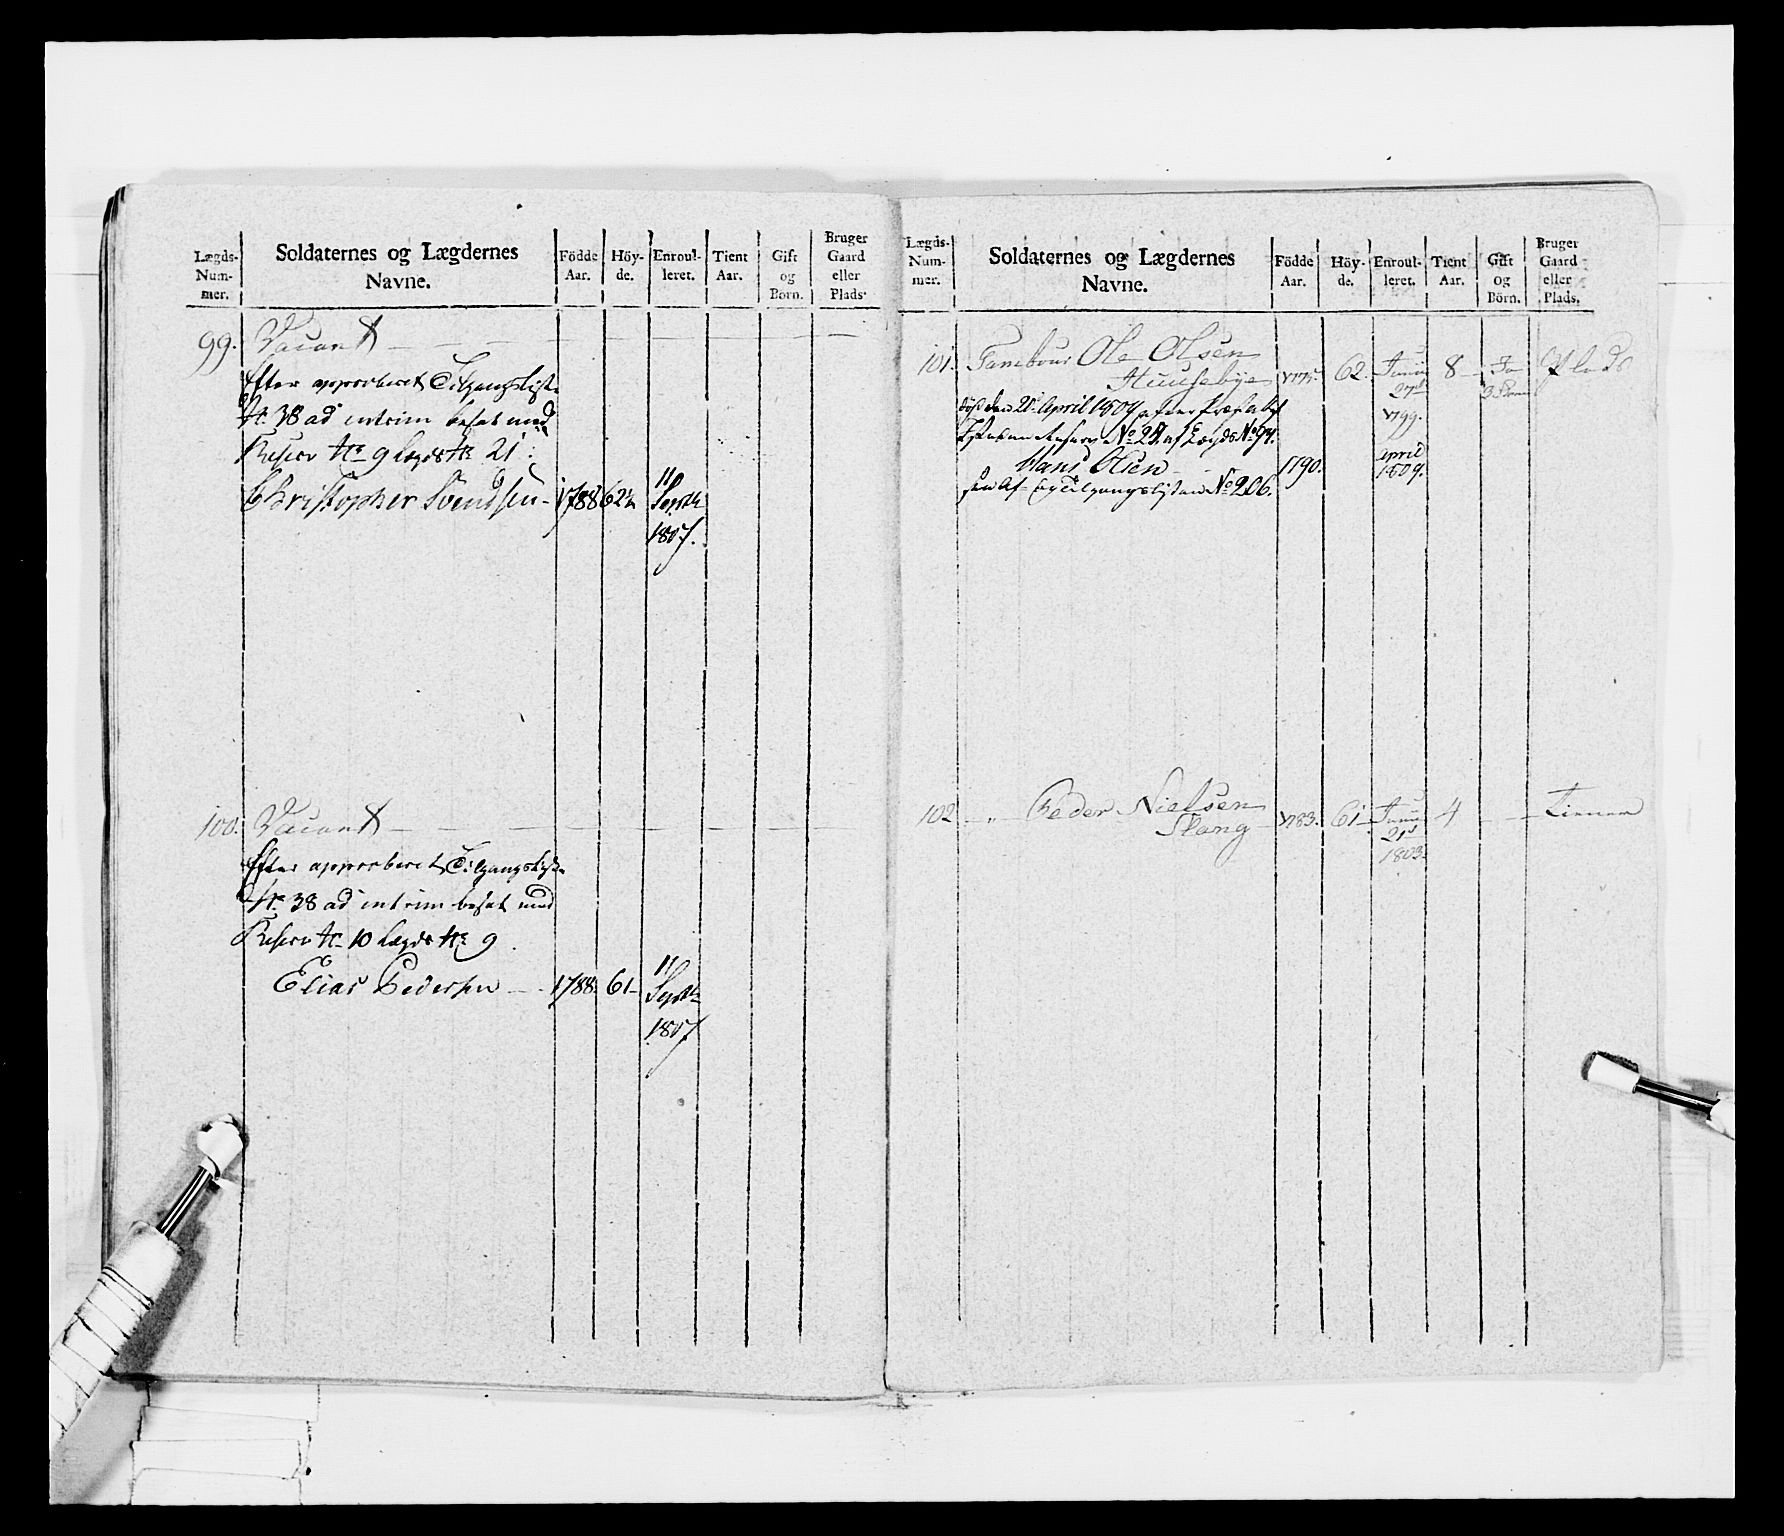 Lægds-
Num-
mer.
Soldaternes og Lægdernes
Navne.
Födde
Aar.
Höy-
de.
Enroul-
leret.
Tient
Aar.
Gift
og
Börn.
Bruger
Gaard
eller
Plads.
99. Vacant
Efter approberet Tilgangsliste
No 38 ad interim besat med
Reserv No 9 Lægds No 21.
Christopher Svendsen 1788 62½ 11 Septbr 1807.
100. Vacant
Efter approberet Tilgangsliste
No 38 ad interim besat med
Reserv No 10 Lægds No 9
Elias Pedersen 1788. 61 11 Septbr 1807
Lægds-
Num-
mer.
Soldaternes og Lægdernes
Navne.
Födde
Aar.
Höy-
de.
Enroul-
leret.
Tient
Aar.
Gift
og
Börn.
Bruger
Gaard
eller
Plads.
101. Tambour Ole Olsen
Huusebye 1775. 62. Junii 27d 1799. 8 Ja 3 Børn Plads
död den 20 April 1809
No 27 af Lægds No 94.
Hans Olsen 1790. April 1809.
No 206.
102 " Peder Nielsen
Stang 1783. 61 Junii 21d 1803. 4 Tienner